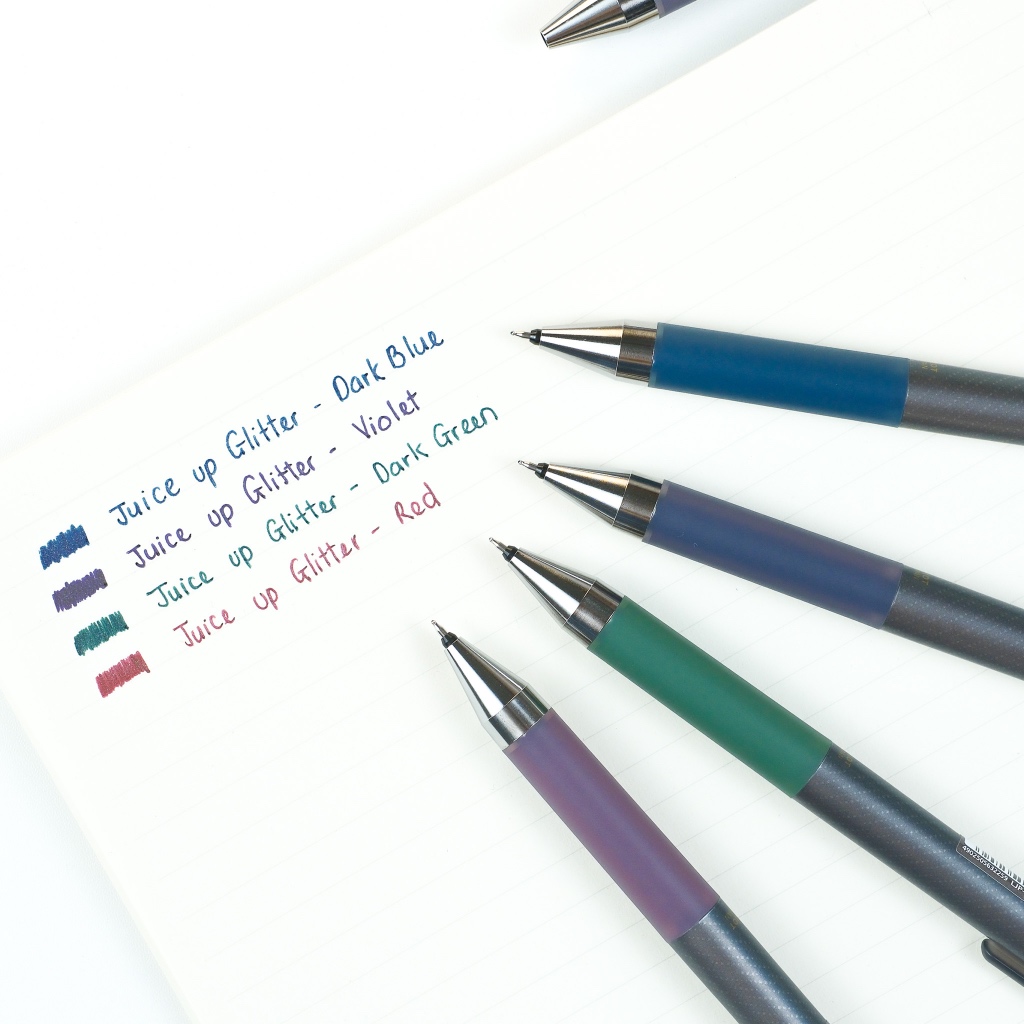 Juice up Glitter - Dark Blue
Juice up Glitter - Violet
Juice up Glitter - Dark Green
Juice up Glitter - Red